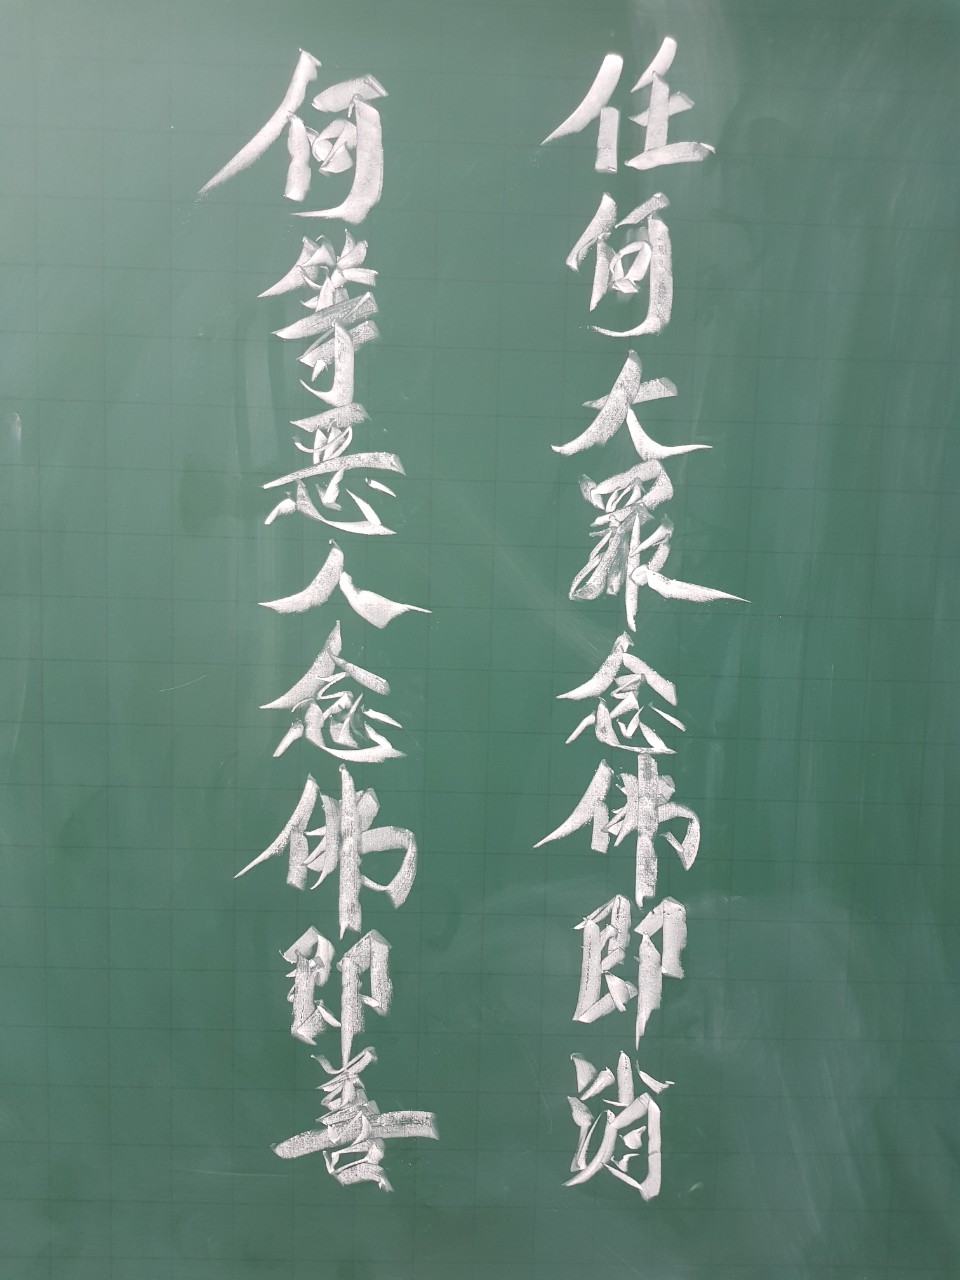 任何大罪念佛即消
何等恶人念佛即善